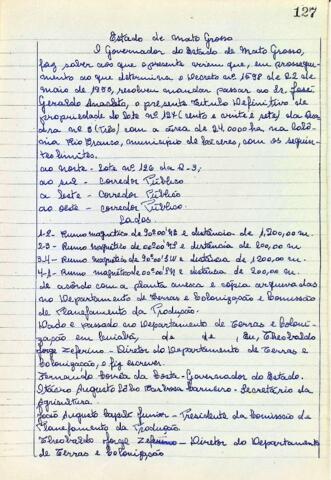 127
Estado de Mato Grosso
O Governador do Estado de Mato Grosso,
faz saber aos que o presente virem que, em prosegui-
mento ao que determina o Decreto nº 1598 de 22 de
maio de 1953, resolveu mandar passar ao Sr. José
Geraldo Anacleto, o presente Titulo Definitivo de
propriedade do lote nº 127 (cento e vinte e sete) da Qua
dra nº 3 (Três) com a área de 24.000 ha na Colô
nia Rio Branco, município de Cáceres, com os seguin-
tes limites.
ao norte - Lote nº 126 da Q-3,
ao sul - Corredor Público
a Leste - Corredor Público
ao oeste - Corredor Público.
Lados.
1-2- Rumo magnético de 90º00'NE e distância de 1,200,00 m.
2-3- Rumo magnético de 00º00'SE e distância de 200,00 m.
3-4- Rumo magnético de 90º00'SW e distância de 1200,00 m.
4-1- Rumo magnético de 00º00'NW e distância de 200,00 m.
de acôrdo com a planta anexa e cópia arquivadas
no Departamento de Terras e Colonização e Comissão
de Planejamento da Produção.
Dado e passado no Departamento de Terras e Coloni-
zação em Cuiabá, de de , Eu, Theobaldo
Jorge Zeferino - Diretor do Departamento de Terras e
Colonização, o fiz escrever.
Fernando Corrêa da Costa - Governador do Estado.
Itrio Augusto Lobo Barbosa Carneiro - Secretário da
Agricultura.
João Augusto Capilé Junior - Presidente da Comissão de
Planejamento da Produção
Theobaldo Jorge Zeferino - Diretor do Departamento
de Terras e Colonização